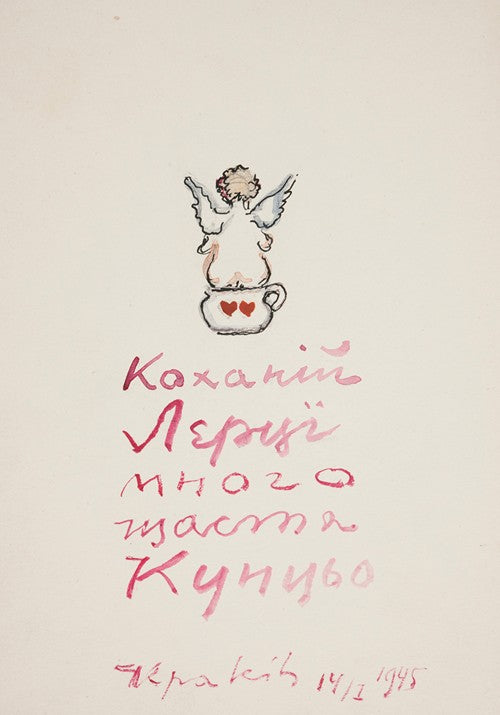 Коханій
Лєрції
много
щастя
Кунцьо
Краків 14/I 1945